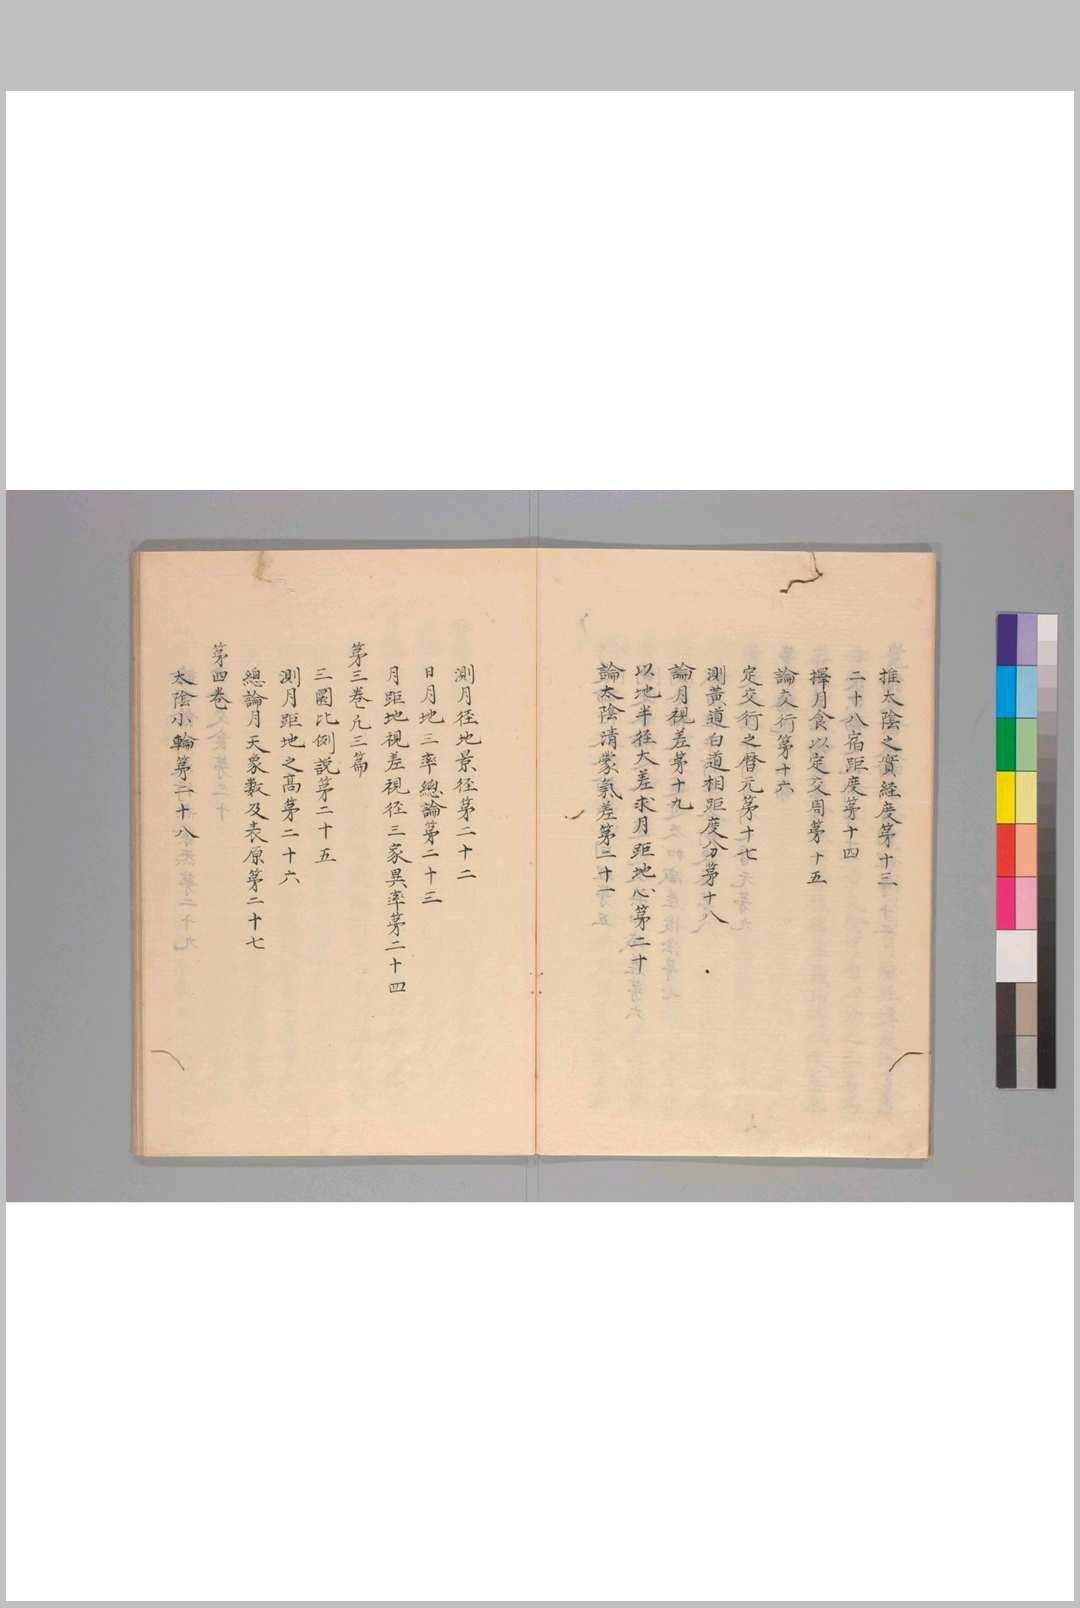 推太陰之實経度第十三
二十八宿距度第十四
擇月食以定交周第十五
論交行第十六
定交行之暦元第十七
測黃道白道相距度分第十八
論月視差第十九
以地半径大差求月距地心第二十
論太陰清蒙氣差第二十一
測月径地景径第二十二
日月地三率總論第二十三
月距地視差視径三家異率第二十四
第三卷凡三篇
三圜比例説第二十五
測月距地之高第二十六
總論月天象数及表原第二十七
第四卷
太陰小輪第二十八